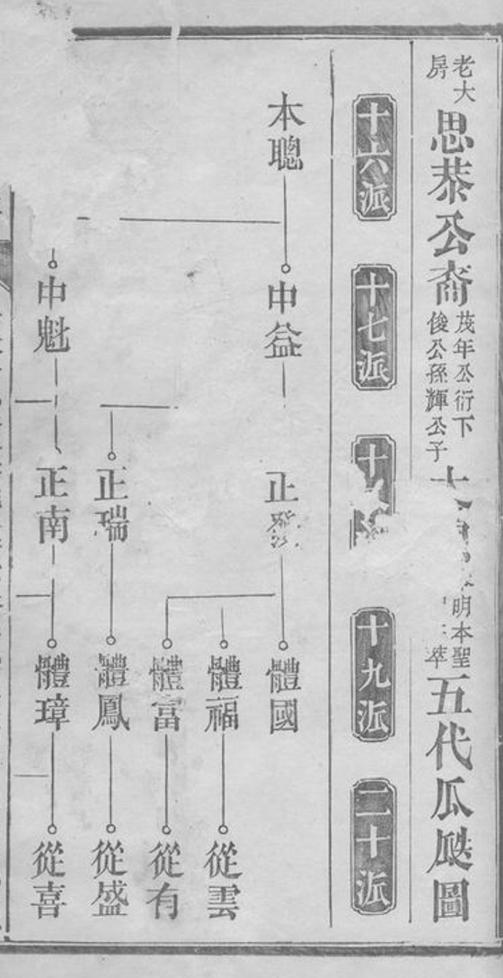 老大房
思恭公裔
茂年公衍下
俊公孫輝公子
明本聖
萃
五代瓜瓞圖
十六派
十七派
十
十九派
二十派
本聰
中益
正
體國
體福
從雲
體富
從有
正瑞
體鳳
從盛
中魁
正南
體璋
從喜